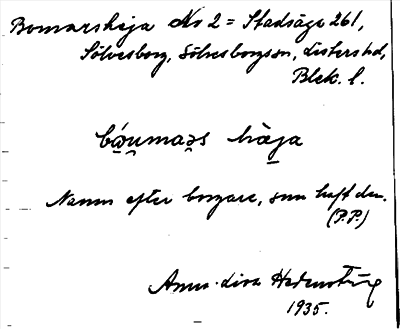 Bomarshaja No 2 = Stadsäga 261,
Sölvesborg, Sölvesborgssn, Listers hd,
Blek. l.
bóu̯maəs hàja
Namn efter borgare, som haft den.
(P.P.)
Anna-Lisa
1935.